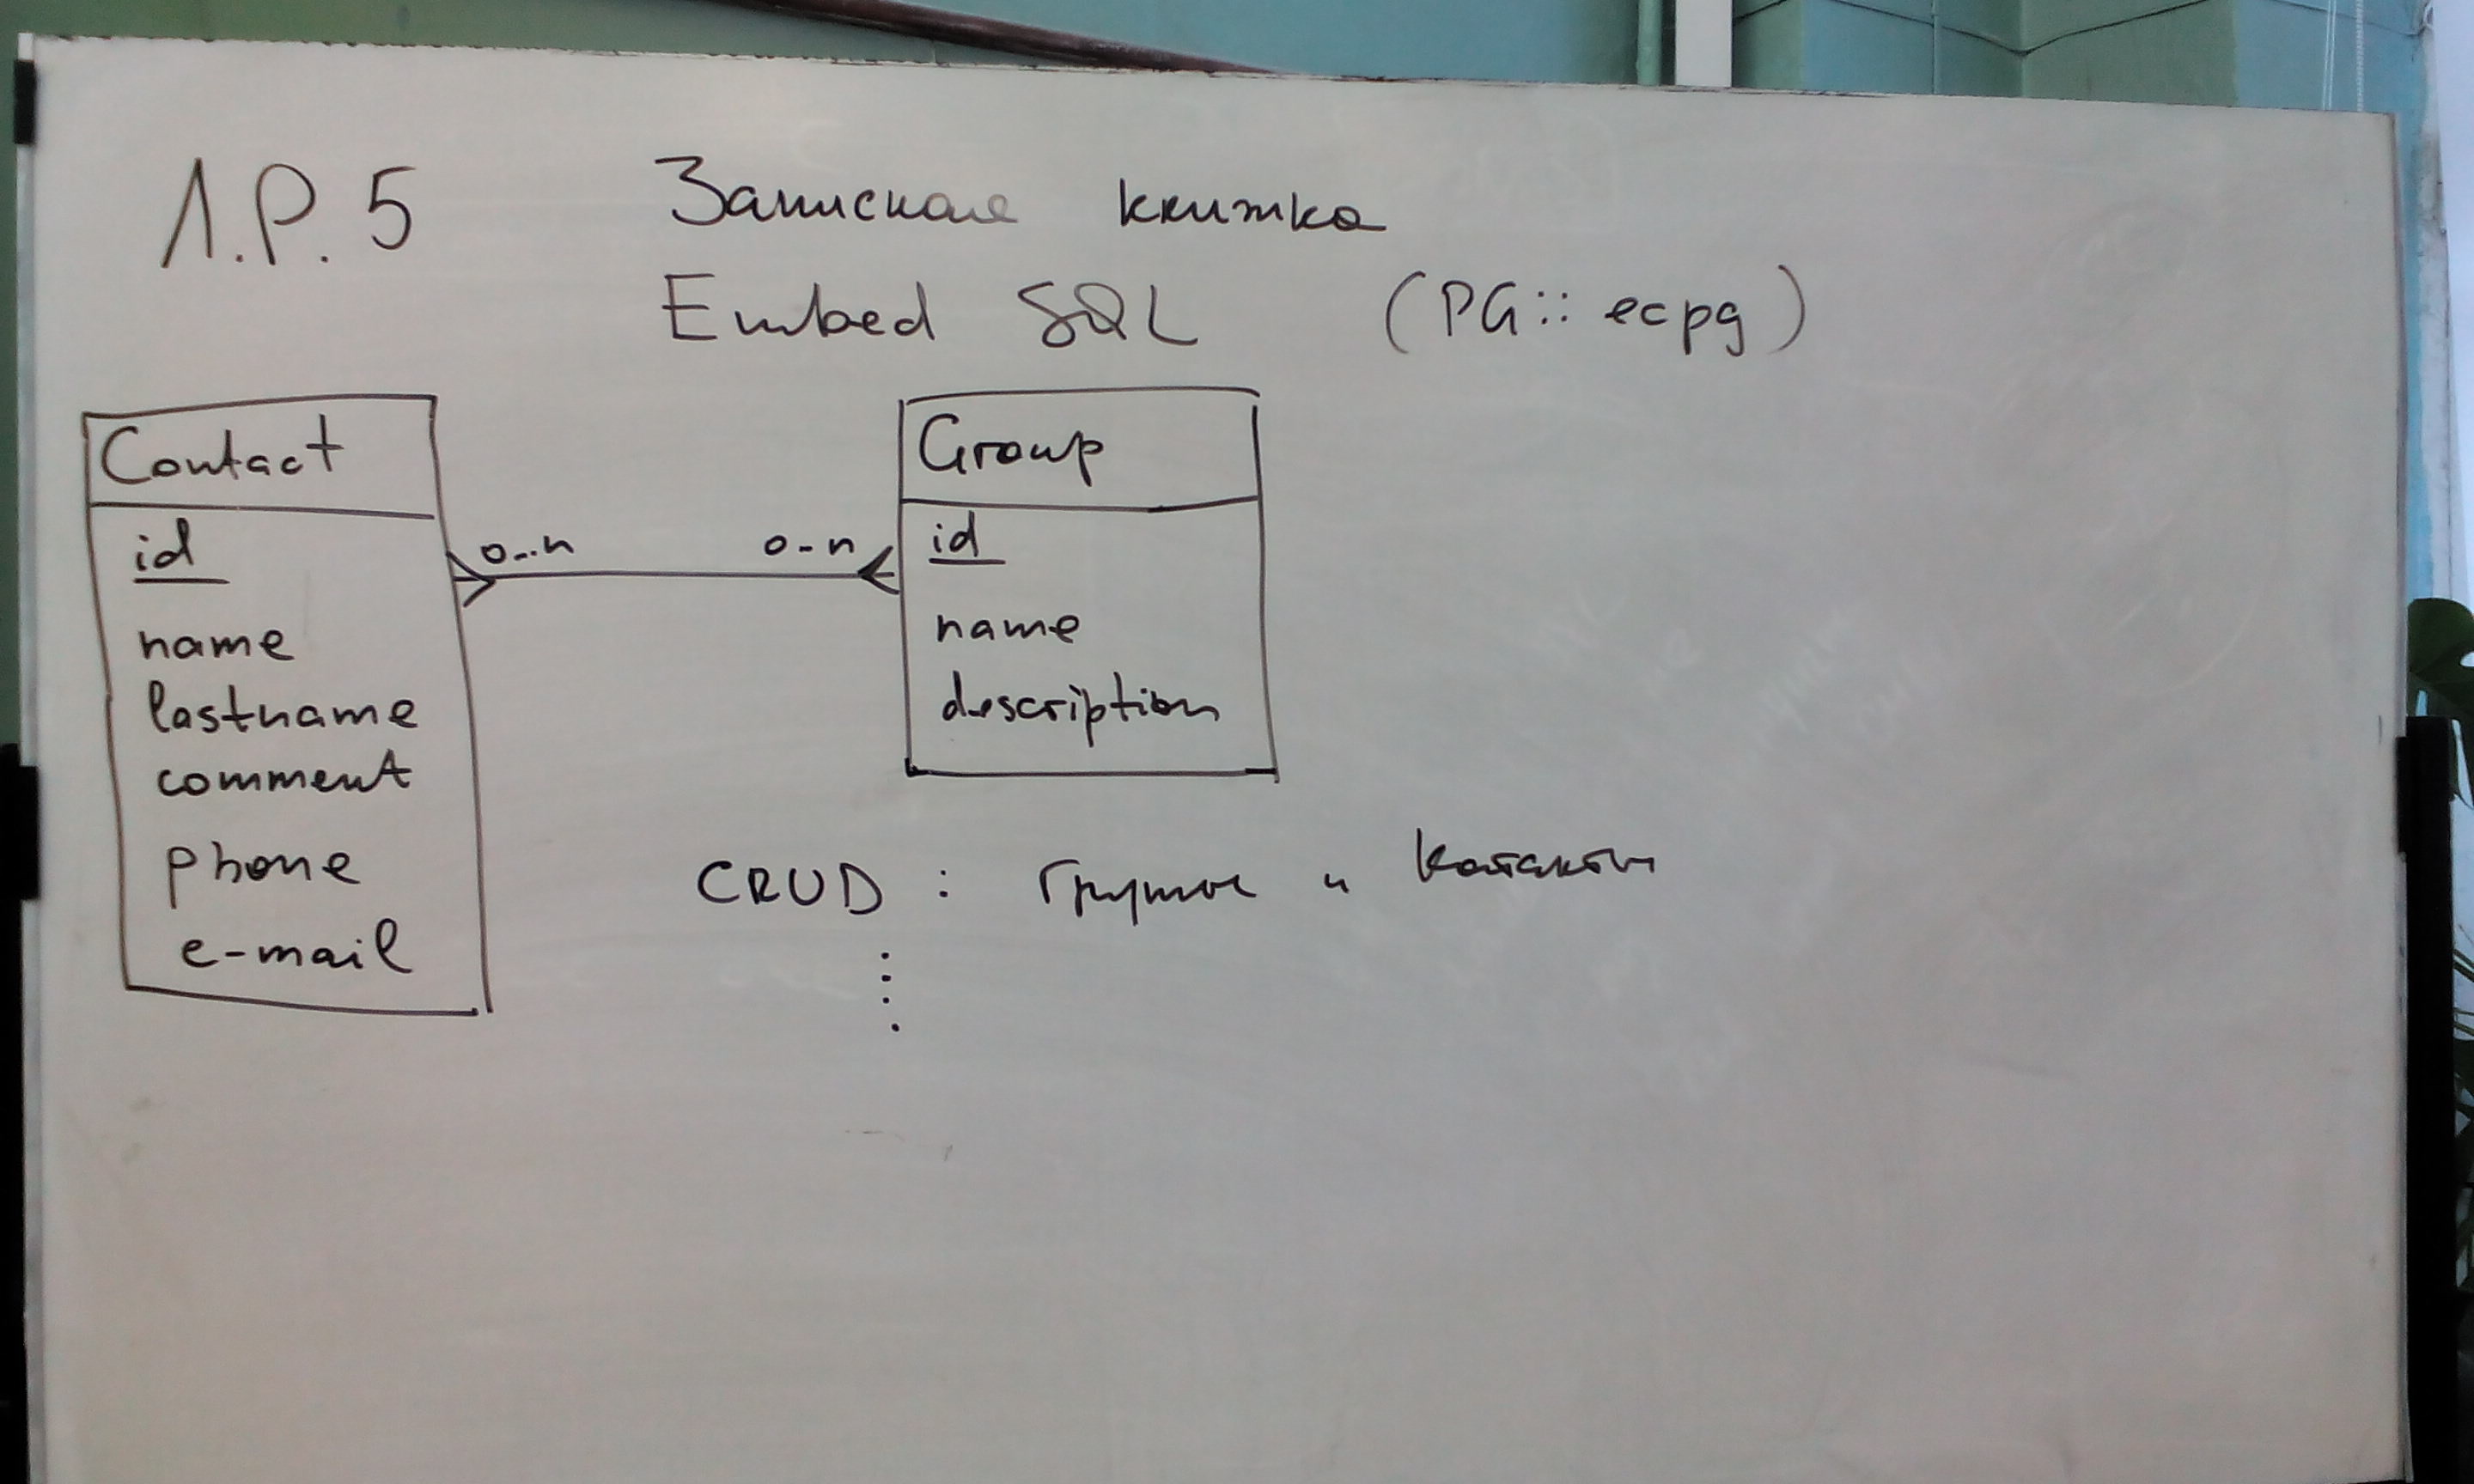 Л.Р. 5
Записная книжка
Embed SQL (PG:: ecpg)
Contact
id
name
lastname
comment
phone
e-mail
0..n
0-n
Group
id
name
description
CRUD : Группы и Контакты